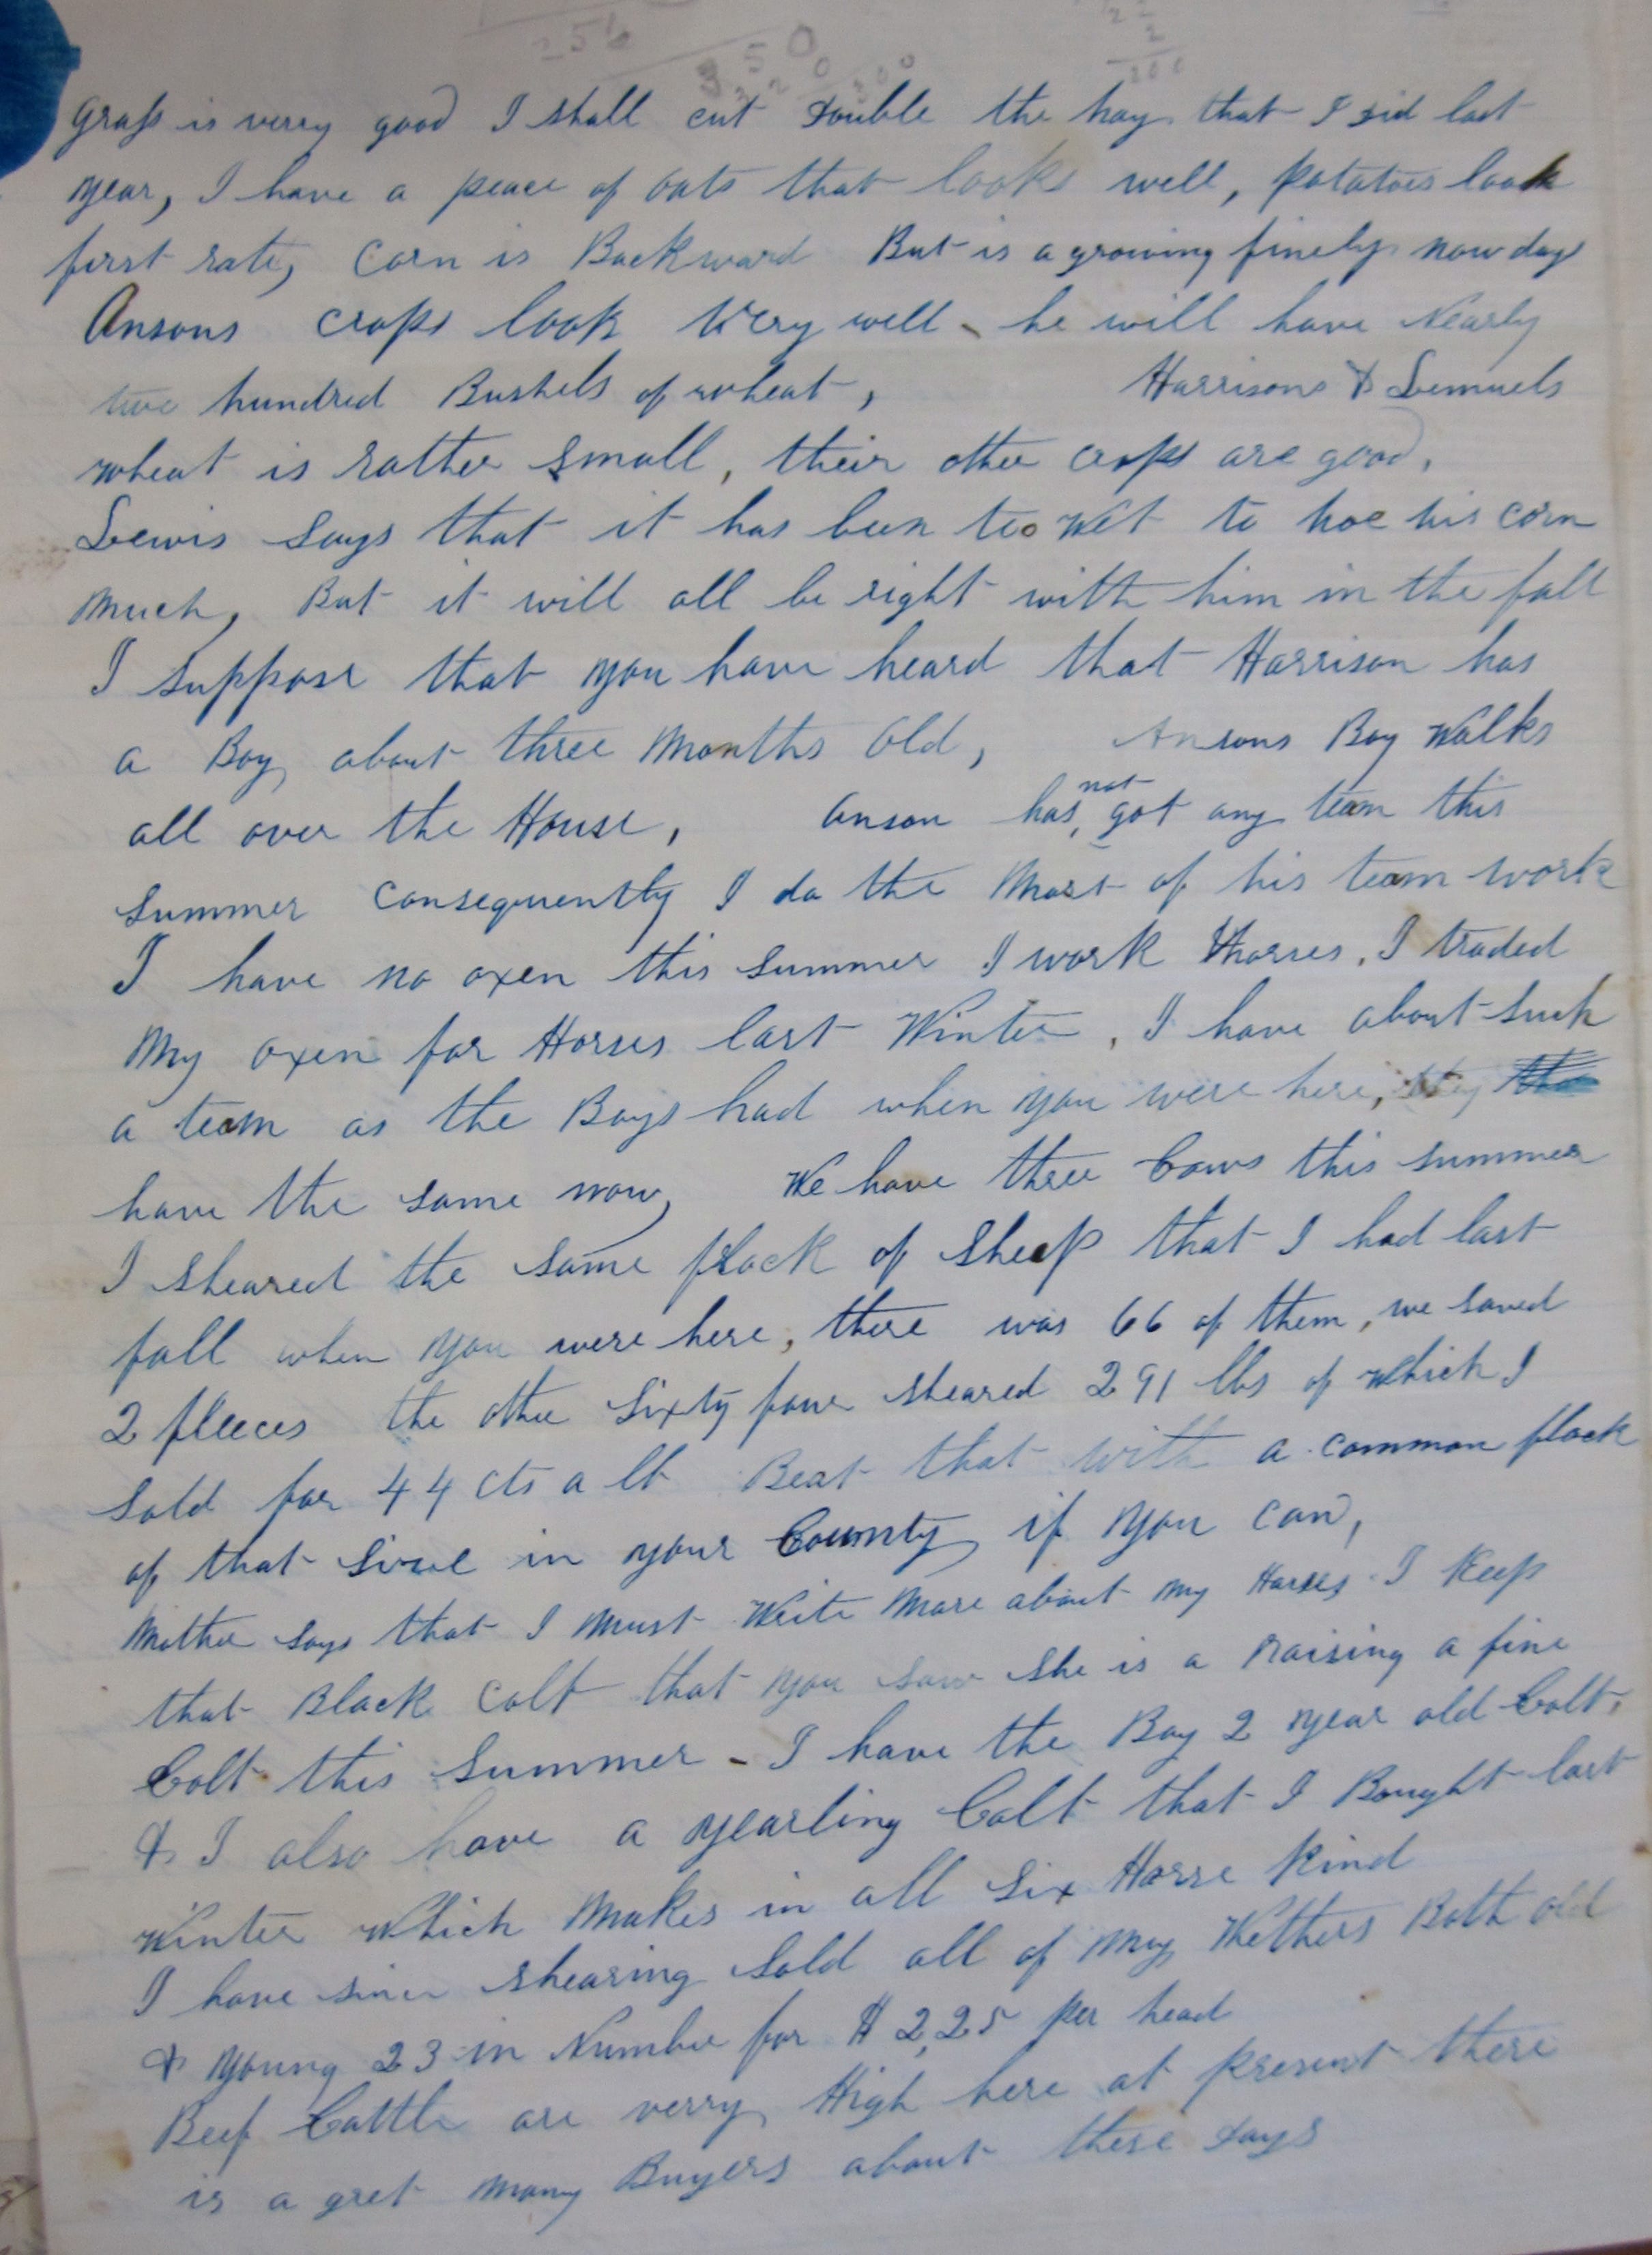 256
350
grass is verry good I shall cut double the hay that I did last
year, I have a peace of oats that looks well, potatoes look
first rate, Corn is Backward But is a growing finely now days
Ansons crops look Very well - he will have Nearly
two hundred Bushels of wheat, Harrisons & Lemuels
wheat is rather Small, their other crops are good,
Lewis Says that it has been too Wet to hoe his corn
Much, But it will all be right with him in the fall
I suppose that you have heard that Harrison has
a Boy about three Months Old, Ansons Boy Walks
all over the House, Anson has not got any team this
Summer Consequently I do the Most of his team work
I have no oxen this Summer I work Horses, I traded
My oxen for Horses last Winter, I have about such
a team as the Boys had when you were here, they
have the same now, We have three Cows this summer
I sheared the same flock of Sheep that I had last
fall when you were here, there was 66 of them, we saved
2 fleeces the other Sixty four sheared 291 lbs of which I
Sold for 44 cts a lb Beat that with a common flock
of that Sise in your County if you can,
Mother Says that I Must Write More about My Horses I Keep
that Black Colt that you saw She is a raising a fine
Colt this Summer - I have the Bay 2 year old Colt,
& I also have a yearling Colt that I Bought last
Winter which Makes in all Six Horse Kind
I have since shearing Sold all of My Wethers Both old
& young 23 in Number for $2,25 per head
Beef Cattle are verry High here at present there
is a gret Many Buyers about these days